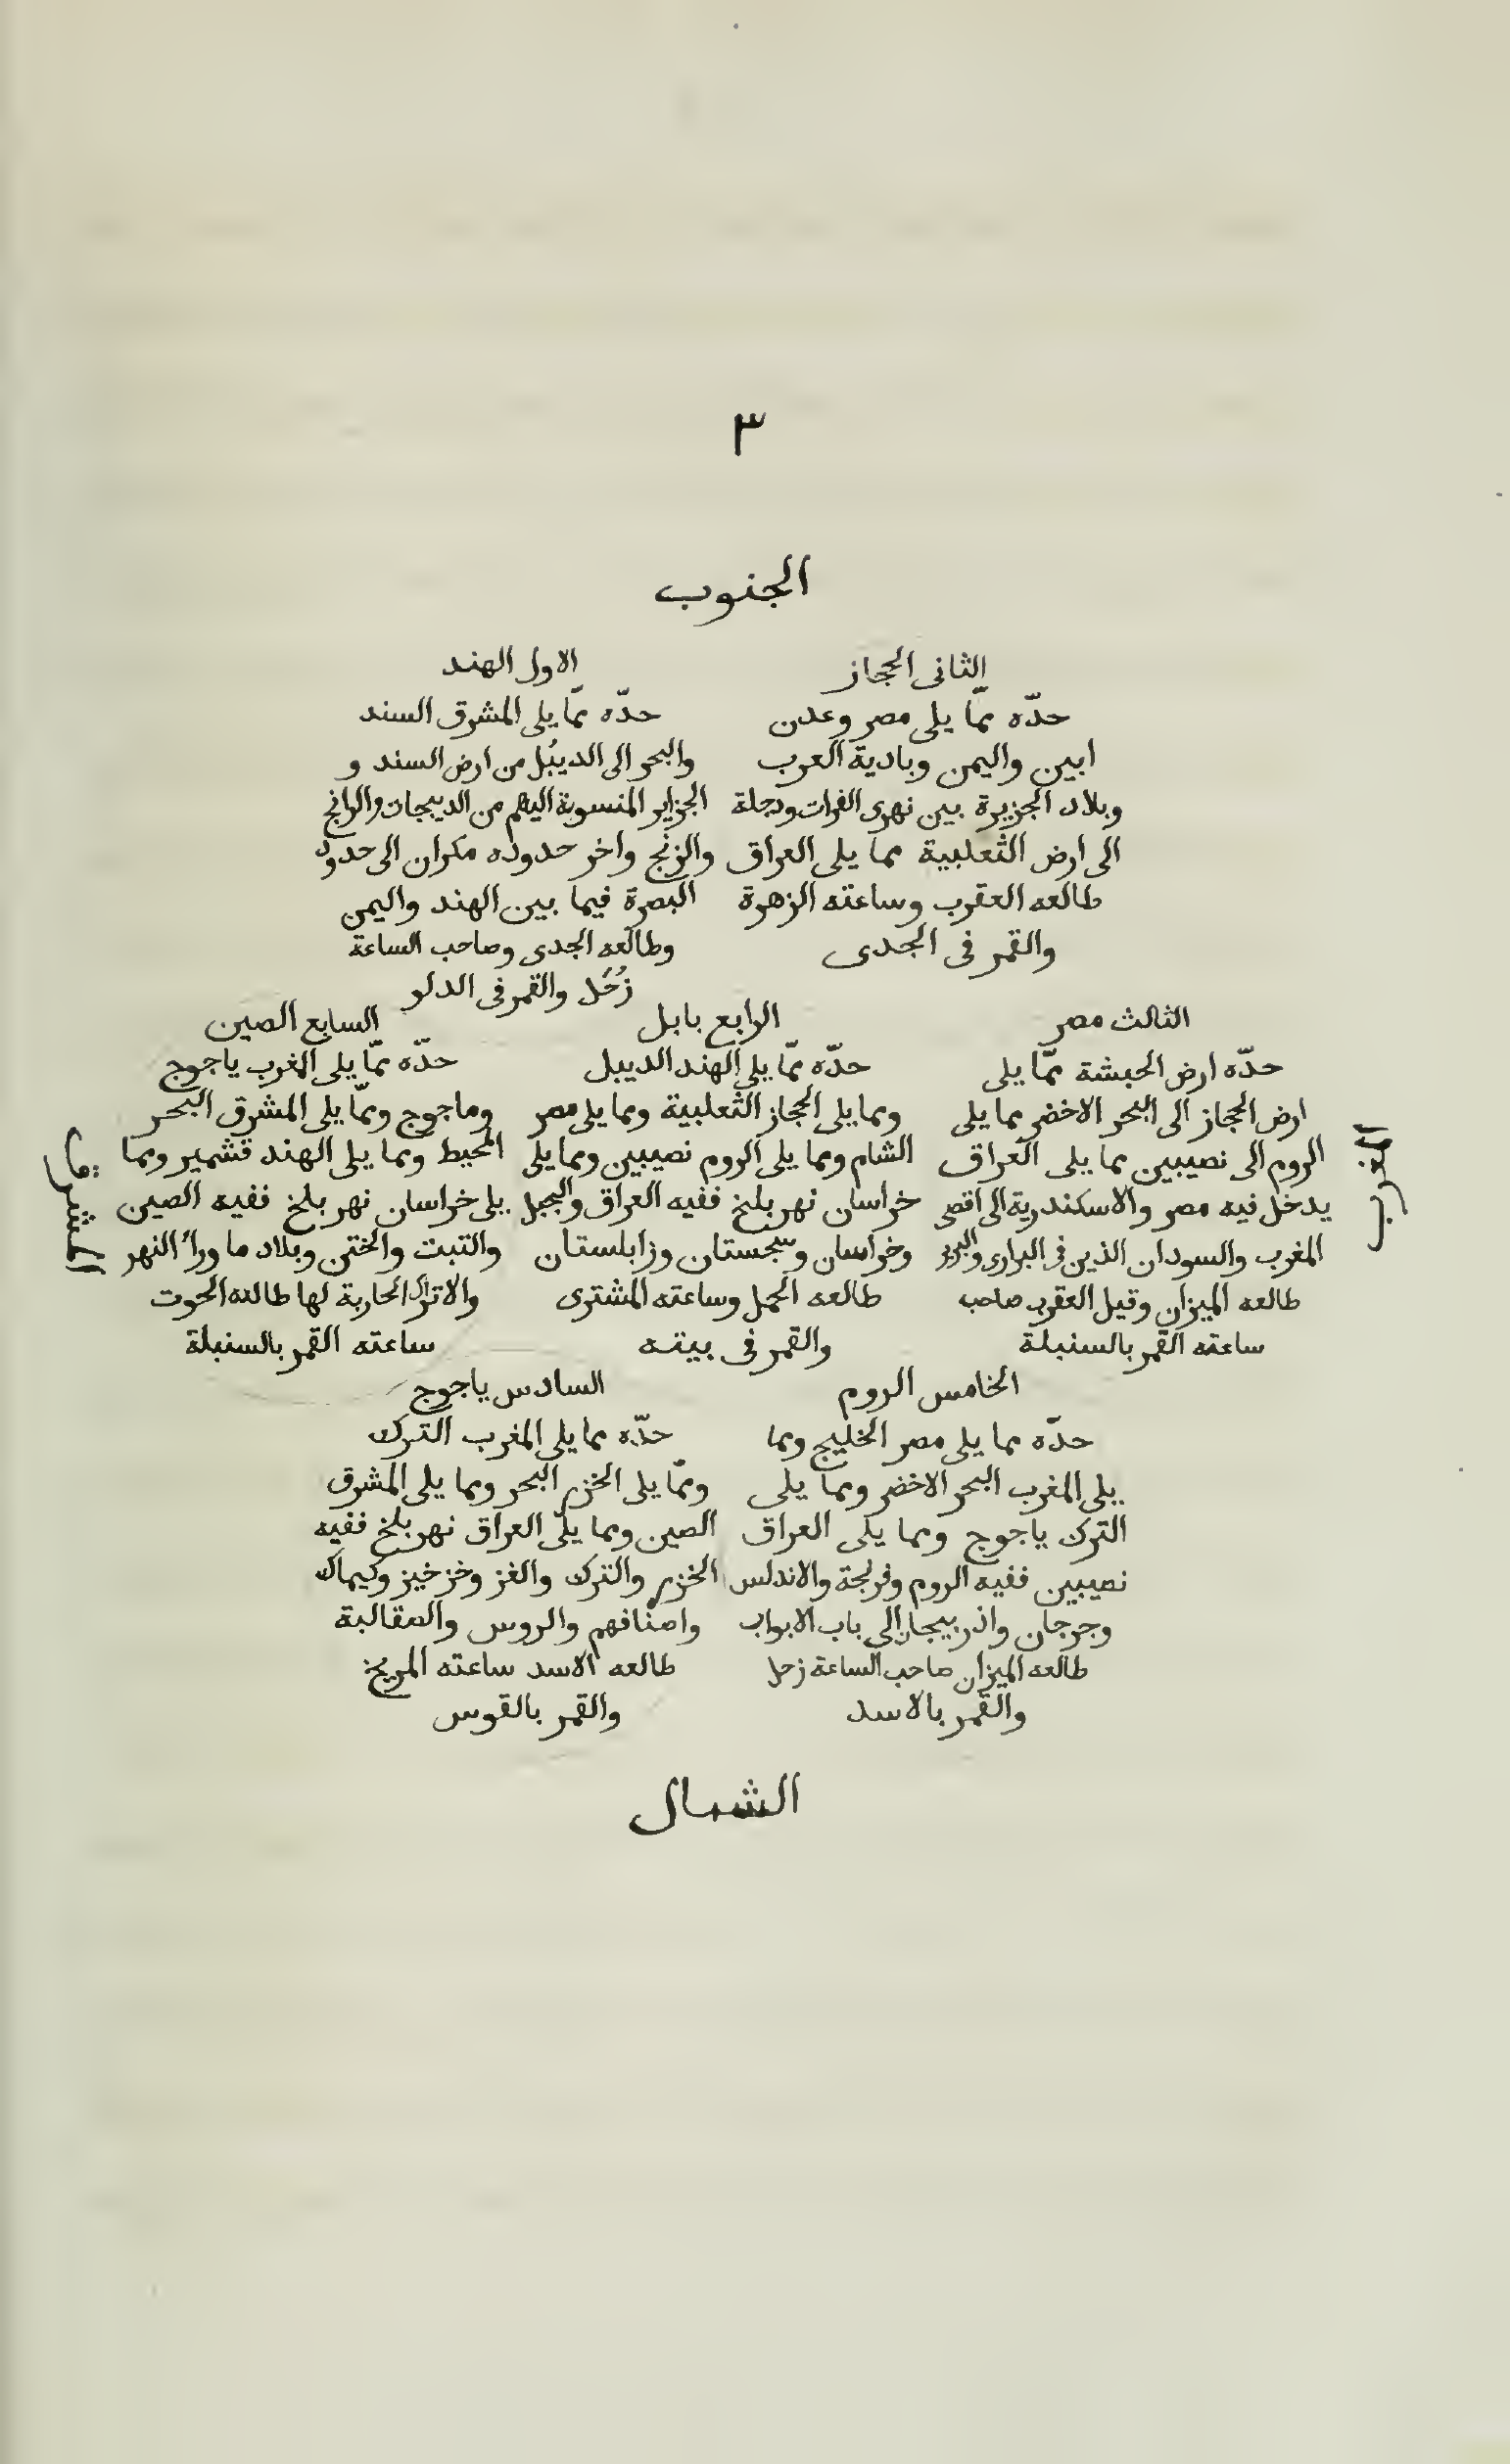 ٣
الجنوب
الاول الهند
حدّه ممّا يلى المشرق السند
والبحر الى الديبُل من ارض السند و
الجزاير المنسوبة اليهم من الديبجات والرانج
والزنج واخر حدوده مكران الى حدود
البصرة فيما بين الهند واليمن
وطالعه الجدى وصاحب الساعة
زُحَل والقمر فى الدلو
الثانى الحجاز
حدّه ممّا يلى مصر وعدن
ابين واليمن وبادية العرب
وبلاد الجزيرة بين نهرى الفرات ودجلة
الى ارض الثعلبية مما يلى العراق
طالعه العقرب وساعته الزهرة
والقمر فى الجدى
الثالث مصر
حدّه ارض الحبشة ممّا يلى
ارض الحجاز الى البحر الاخضر مما يلى
الروم الى نصيبين مما يلى العراق
يدخل فيه مصر والاسكندرية الى اقصى
المغرب والسودان الذين فى البرارى والبربر
طالعه الميزان وقيل العقرب صاحب
ساعته القمر بالسنبلة
الرابع بابل
حدّه ممّا يلى الهند الديبل
ومما يلى الحجاز الثعلبية ومما يلى مصر
الشام ومما يلى الروم نصيبين ومما يلى
خراسان نهر بلخ ففيه العراق والجبل
وخراسان وسجستان وزابلستان
طالعه الحمل وساعته المشترى
والقمر فى بيته
السابع الصين
حدّه ممّا يلى المغرب ياجوج
وماجوج وممّا يلى المشرق البحر
المحيط ومما يلى الهند قشمير ومما
يلى خراسان نهر بلخ ففيه الصين
والتبت والختن وبلاد ما وراء النهر
والاتراك الحاربة لها طالعه الحوت
ساعته القمر بالسنبلة
المغرب
المشرق
الخامس الروم
حدّه مما يلى مصر الخليج ومما
يلى المغرب البحر الاخضر ومما يلى
الترك ياجوج ومما يلى العراق
نصيبين ففيه الروم وفرنجة والاندلس
وجرجان واذربيجان الى باب الابواب
طالعه الميزان صاحب الساعة زحل
والقمر بالاسد
السادس ياجوج
حدّه مما يلى المغرب الترك
وممّا يلى الخزر البحر ومما يلى المشرق
الصين ومما يلى العراق نهر بلخ ففيه
الخزر والترك والغز وخزخيز وكيماك
واصنافهم والروس والصقالبة
طالعه الاسد ساعته المريخ
والقمر بالقوس
الشمال